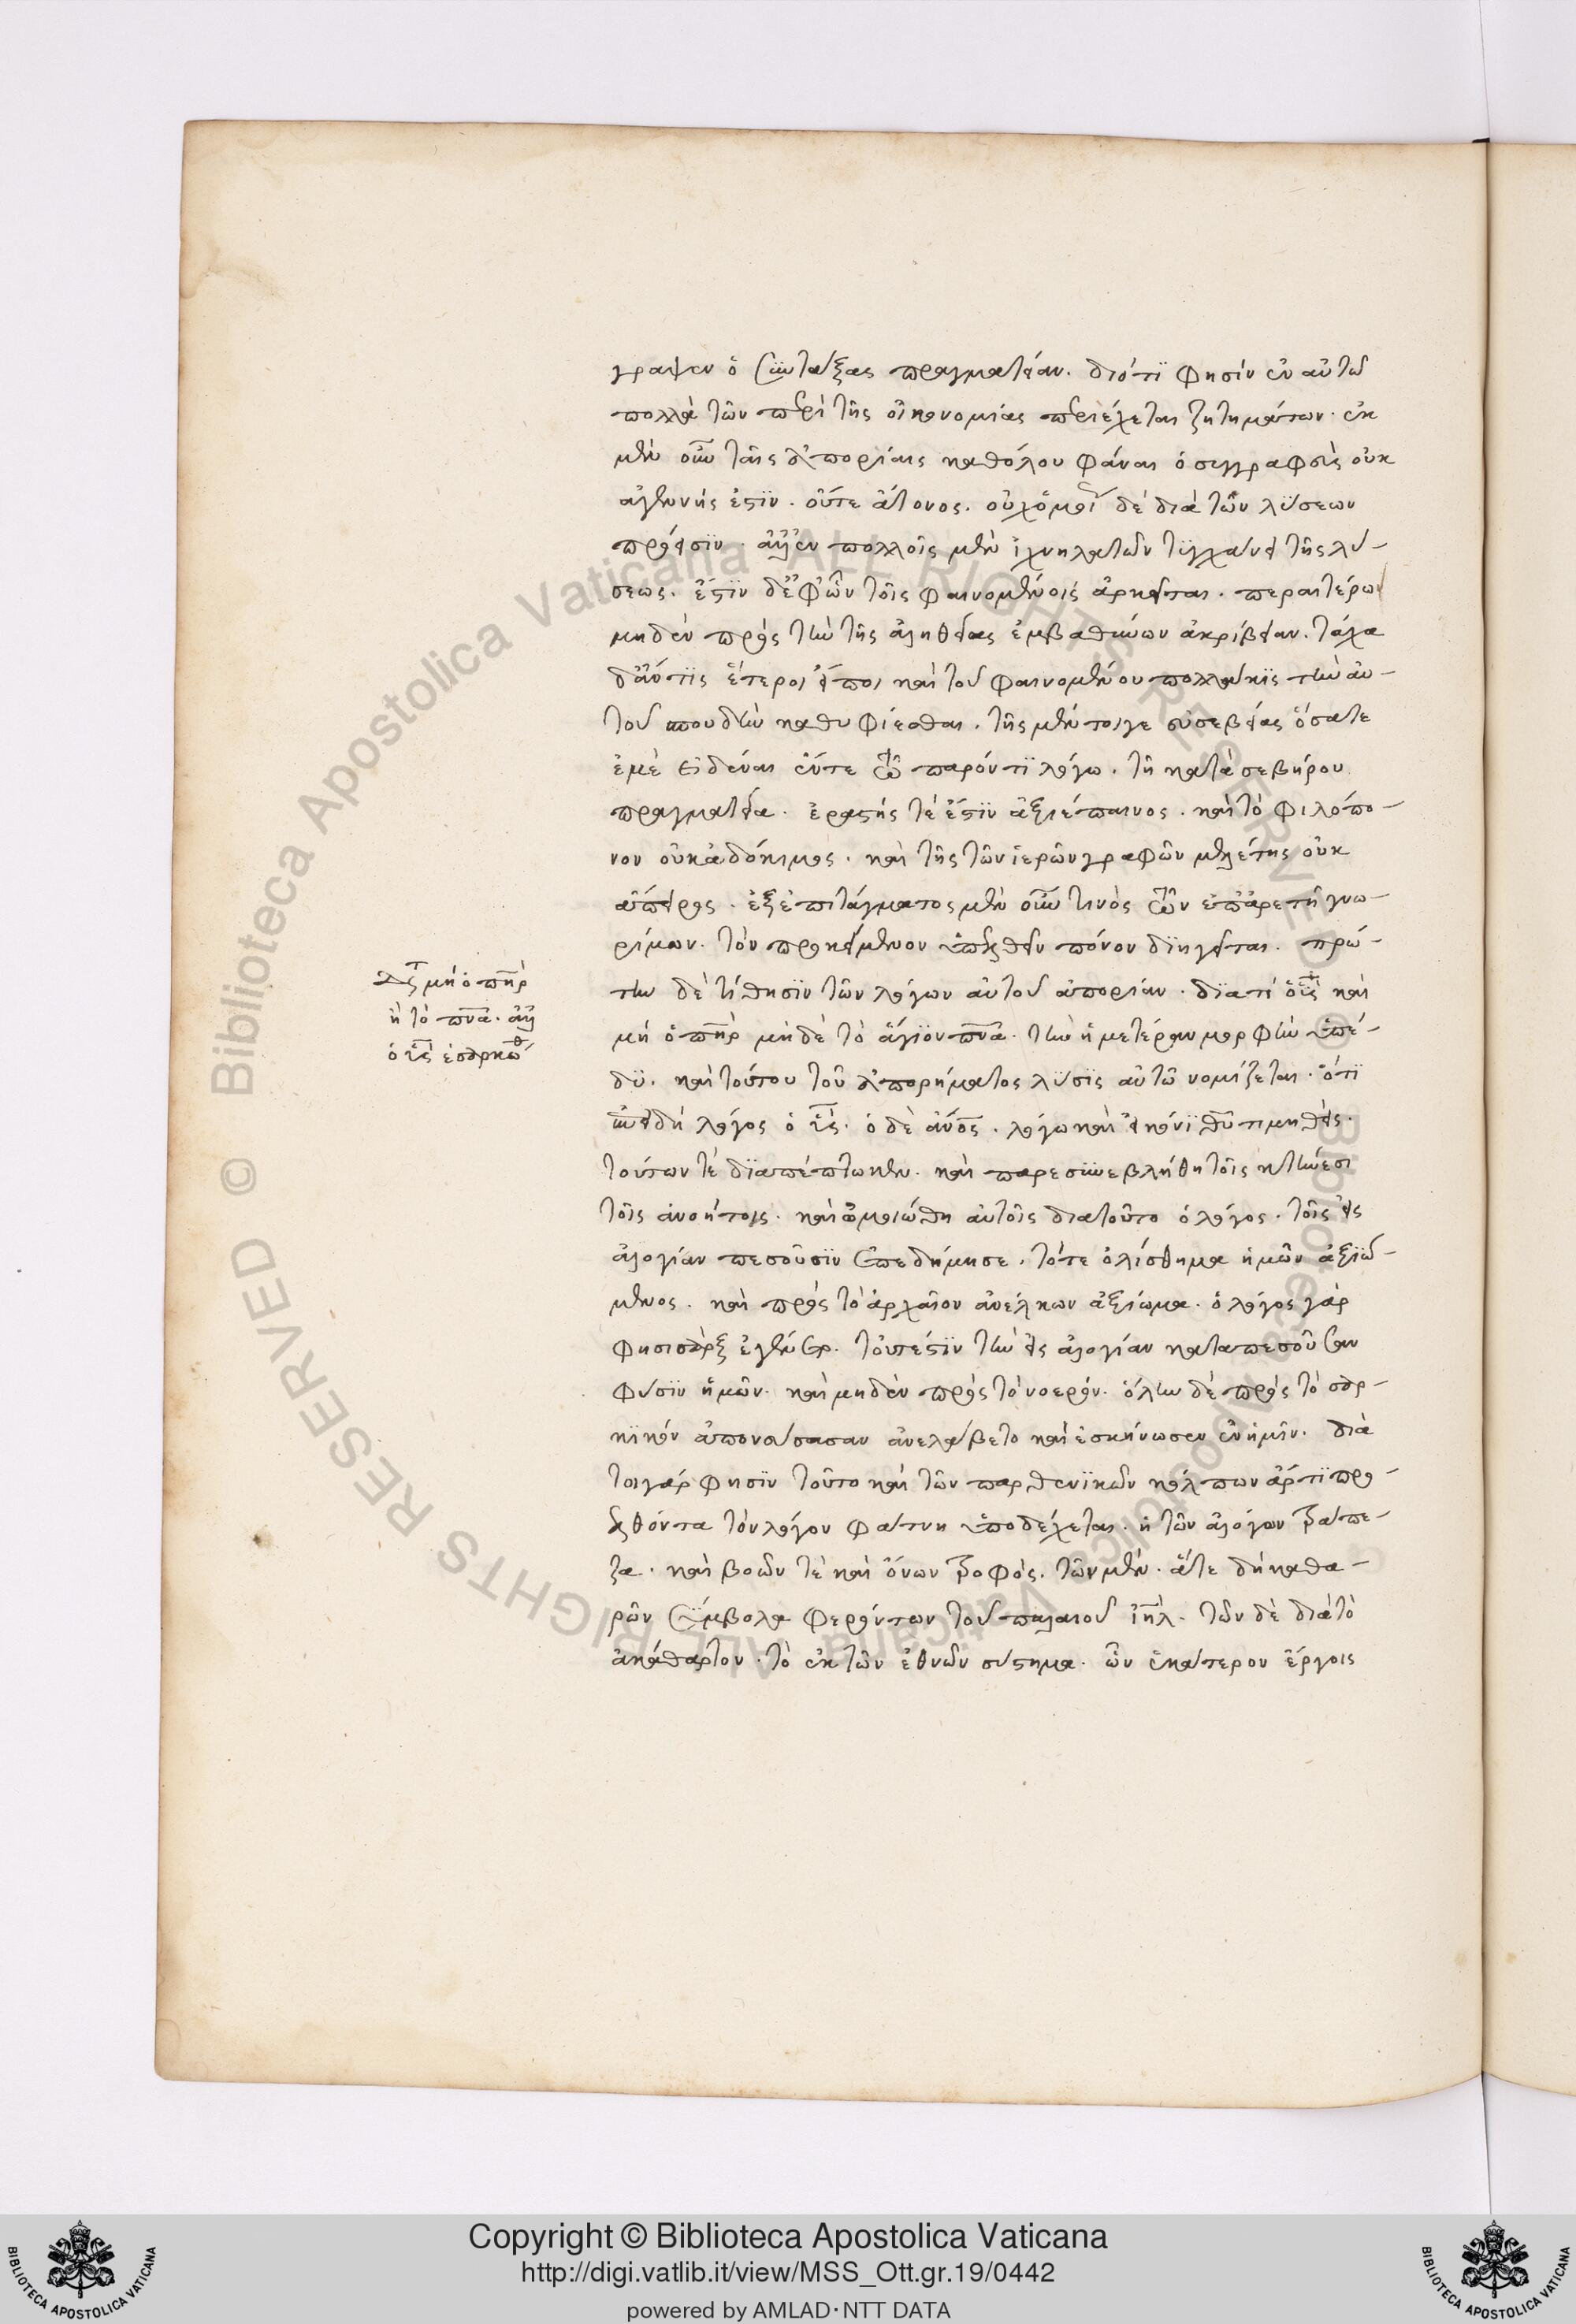 γραψεν ὁ συντάξας πραγματείαν. διότι φησὶν ἐν αὐτῶ
πολλὰ τῶν περὶ τῆς οἰκονομίας περιέχεται ζητημάτων. ἐκ
μὲν οὖν ταῖς ἀπορίαις καθόλου φάναι ὁ συγγραφεὺς οὐκ
ἀγεννής ἐστιν. οὔτε ἄτονος. οὐχ δὲ διὰ τῶν λύσεων
πρόεισιν. ἀλλ' ἐν πολλοῖς μὲν ἰχνηλατῶν τυγχάνει τῆς λύ-
σεως. ἔστιν δ' ἐφ' ὧν τοῖς φαινομένοις ἀρκεῖται. περαιτέρω
μηδὲν πρὸς τὴν τῆς ἀληθείας ἐμβαθύνων ἀκρίβειαν. τάχα
δ' ἄν τις ἕτερος εἴποι καὶ τοῦ φαινομένου πολλάκις τὴν αὐ-
τοῦ σπουδὴν καθυφίεσθαι. τῆς μέντοιγε εὐσεβείας ὅσα τε
ἐμὲ εἰδέναι ἔν τε τῶ παρόντι λόγω. τῇ κατὰ σεβήρου
πραγματεία. ἐραστής τέ ἐστιν ἀξιέπαινος. καὶ τὸ φιλόπο-
νον οὐκ ἀδόκιμος. καὶ τῆς τῶν ἱερῶν γραφῶν μελέτης οὐκ
ἄπειρος. ἐξ ἐπιτάγματος μὲν οὖν τινὸς τῶν ἐπ' ἀρετῇ γνω-
ρίμων. τὸν προκείμενον ὑπελθεῖν πόνον διηγεῖται. πρώ-
την δὲ τίθησιν τῶν λόγων αὐτοῦ ἀπορίαν. διατί ὁ υἱὸς καὶ
μὴ ὁ πηρ μηδὲ τὸ ἅγιον πνα. τὴν ἡμετέραν μορφὴν ὑπέ-
δυ. καὶ τούτου τοῦ ἀπορήματος λύσις αὐτῶ νομίζεται. ὅτι
ἐπειδὴ λόγος ὁ υἱός. ὁ δὲ ἀνος. λόγω καὶ εἰκόνι θυ τιμηθεὶς.
τούτων τέ διαπέπτωκεν. καὶ παρεσυνεβλήθη τοῖς κτήνεσι
τοῖς ἀνοήτοις. καὶ ὡμοιώθη αὐτοῖς διατοῦτο ὁ λόγος. τοῖς εἰς
ἀλογίαν πεσοῦσιν ἐπεδήμησε. τότε ὀλίσθημα ἡμῶν ἀξιώ-
μενος. καὶ πρὸς τὸ ἀρχαῖον ἀνέλκων ἀξίωμα. ὁ λόγος γάρ
φησι σὰρξ ἐγένετο. τουτέστιν τὴν εἰς ἀλογίαν καταπεσοῦσαν
φύσιν ἡμῶν. καὶ μηδὲν πρὸς τὸ νοερόν. ὅλην δὲ πρὸς τὸ σαρ-
κικὸν ἀπονεύσασαν ἀνελάβετο καὶ ἐσκήνωσεν ἐν ἡμῖν. διὰ
τοι γάρ φησιν τοῦτο καὶ τῶν παρθενικῶν κόλπων ἄρτι προ-
ελθόντα τὸν λόγον φάτνη ὑποδέχεται. ἡ τῶν ἀλόγων τράπε-
ζα. καὶ βοῶν τὲ καὶ ὄνων τροφός. τῶν μὲν. ἅτε δὴ καθα-
ρῶν σύμβολα φερόντων τοῦ παλαιοῦ ιηλ. τῶν δὲ διὰ τὸ
ἀκάθαρτον. τὸ ἐκ τῶν ἐθνῶν σύστημα. ὧν ἑκάτερον ἔργοις
μὴ ὁ πηρ
ἢ τὸ πνα. ἀλλ
ὁ υἱὸς ἐσαρκώθ
Copyright © Biblioteca Apostolica Vaticana
http://digi.vatlib.it/view/MSS_Ott.gr.19/0442
powered by AMLAD·NTT DATA
BIBLIOTECA APOSTOLICA VATICANA
BIBLIOTECA APOSTOLICA VATICANA
© Biblioteca Apostolica Vaticana ALL RIGHTS RESERVED
© Biblioteca Apostolica Vaticana ALL RIGHTS RESERVED